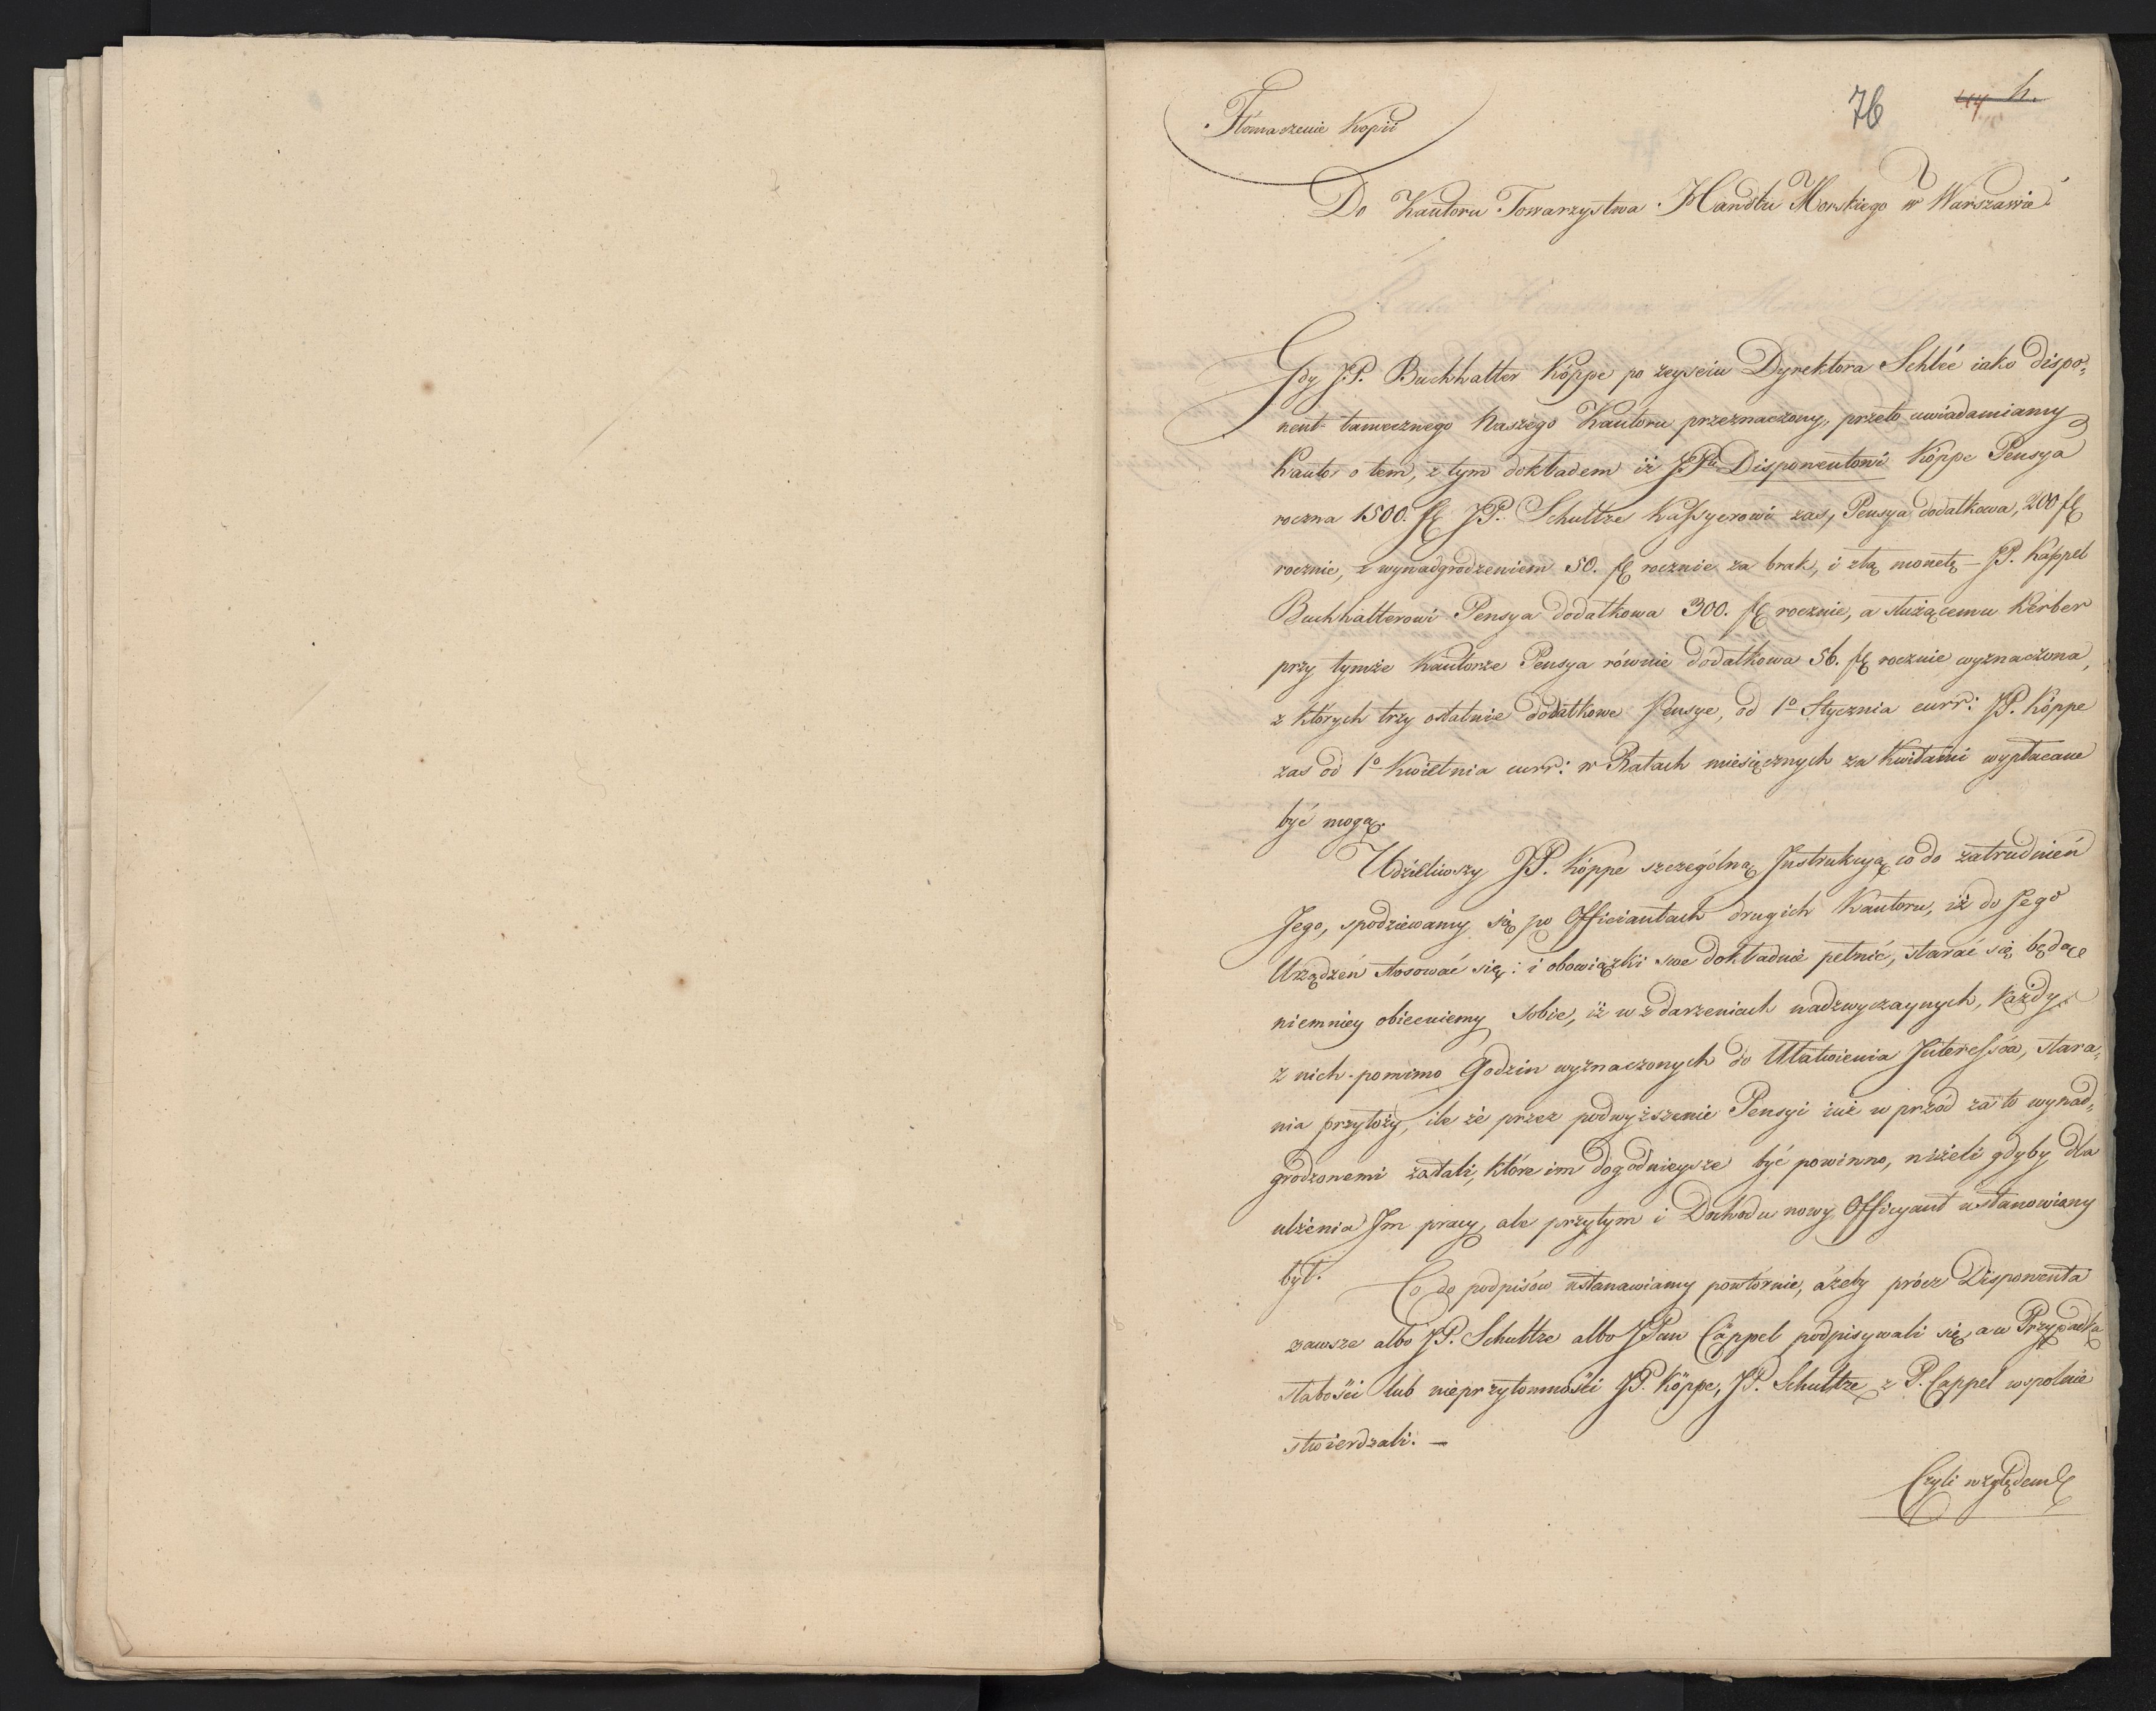 76 44 h.
Tłomaczenie Kopii
Do Kantoru Towarzystwa Handlu Morskiego w Warszawie
Gdy J.P. Buchhalter Köppe po zeyściu Dyrektora Schleé iako dispo„
nent tamecznego Naszego Kantoru przeznaczony, przeto uwiadamiamy
Kantor o tem, z tym dokładem iż JPu Disponentowi Köppe Pensya
roczna 1500. JP. Schultze Kassyerowi zas, Pensya dodatkowa, 200
rocznie, z wynadgrodzeniem 50. rocznie za brak, i złą monetę – JP. Kappel
Buchhalterowi Pensya dodatkowa 300. rocznie, a służącemu Kerber
przy tymże Kantorze Pensya równie dodatkowa 56. rocznie wyznaczona,
z których trzy ostatnie dodatkowe Pensye, od 1o Stycznia curr: JP. Köppe
zas od 1o Kwietnia curr: w Ratach miesięcznych za Kwitami wypłacane
być mogą.
Udzieliwszy JP. Köppe szczególną Instrukcyą co do zatrudnień
Jego, spodziewamy się po Officiantach drugich Kantoru, iż do Jego
Urządzeń stosować się: i obowiązki swe dokładnie pełnić, starać się będą
niemniey obiecuiemy sobie, iż w zdarzeniach nadzwyczaynych, Każdy
z nich pomimo Godzin wyznaczonych do Ułatwienia Interessów, stara„
nia przyłoży, ile że przez podwyższenie Pensyi iuż w przód za to wynad„
grodzonemi zostali, które im dogodnieysze być powinno, niżeli gdyby dla
ulżenia Im pracy, ale przytym i Dochodu nowy Officyant ustanowiany
był.
Co do podpisów ustanawiamy powtórnie, ażeby prócz Disponenta
zawsze albo JP. Schultze albo JPan Cappel podpisywali się, a w Przypadku
słabości lub nieprzytomności JP. Köppe, JP. Schultze z P. Cappel wspolnie
stwierdzali. –
Czyli względem